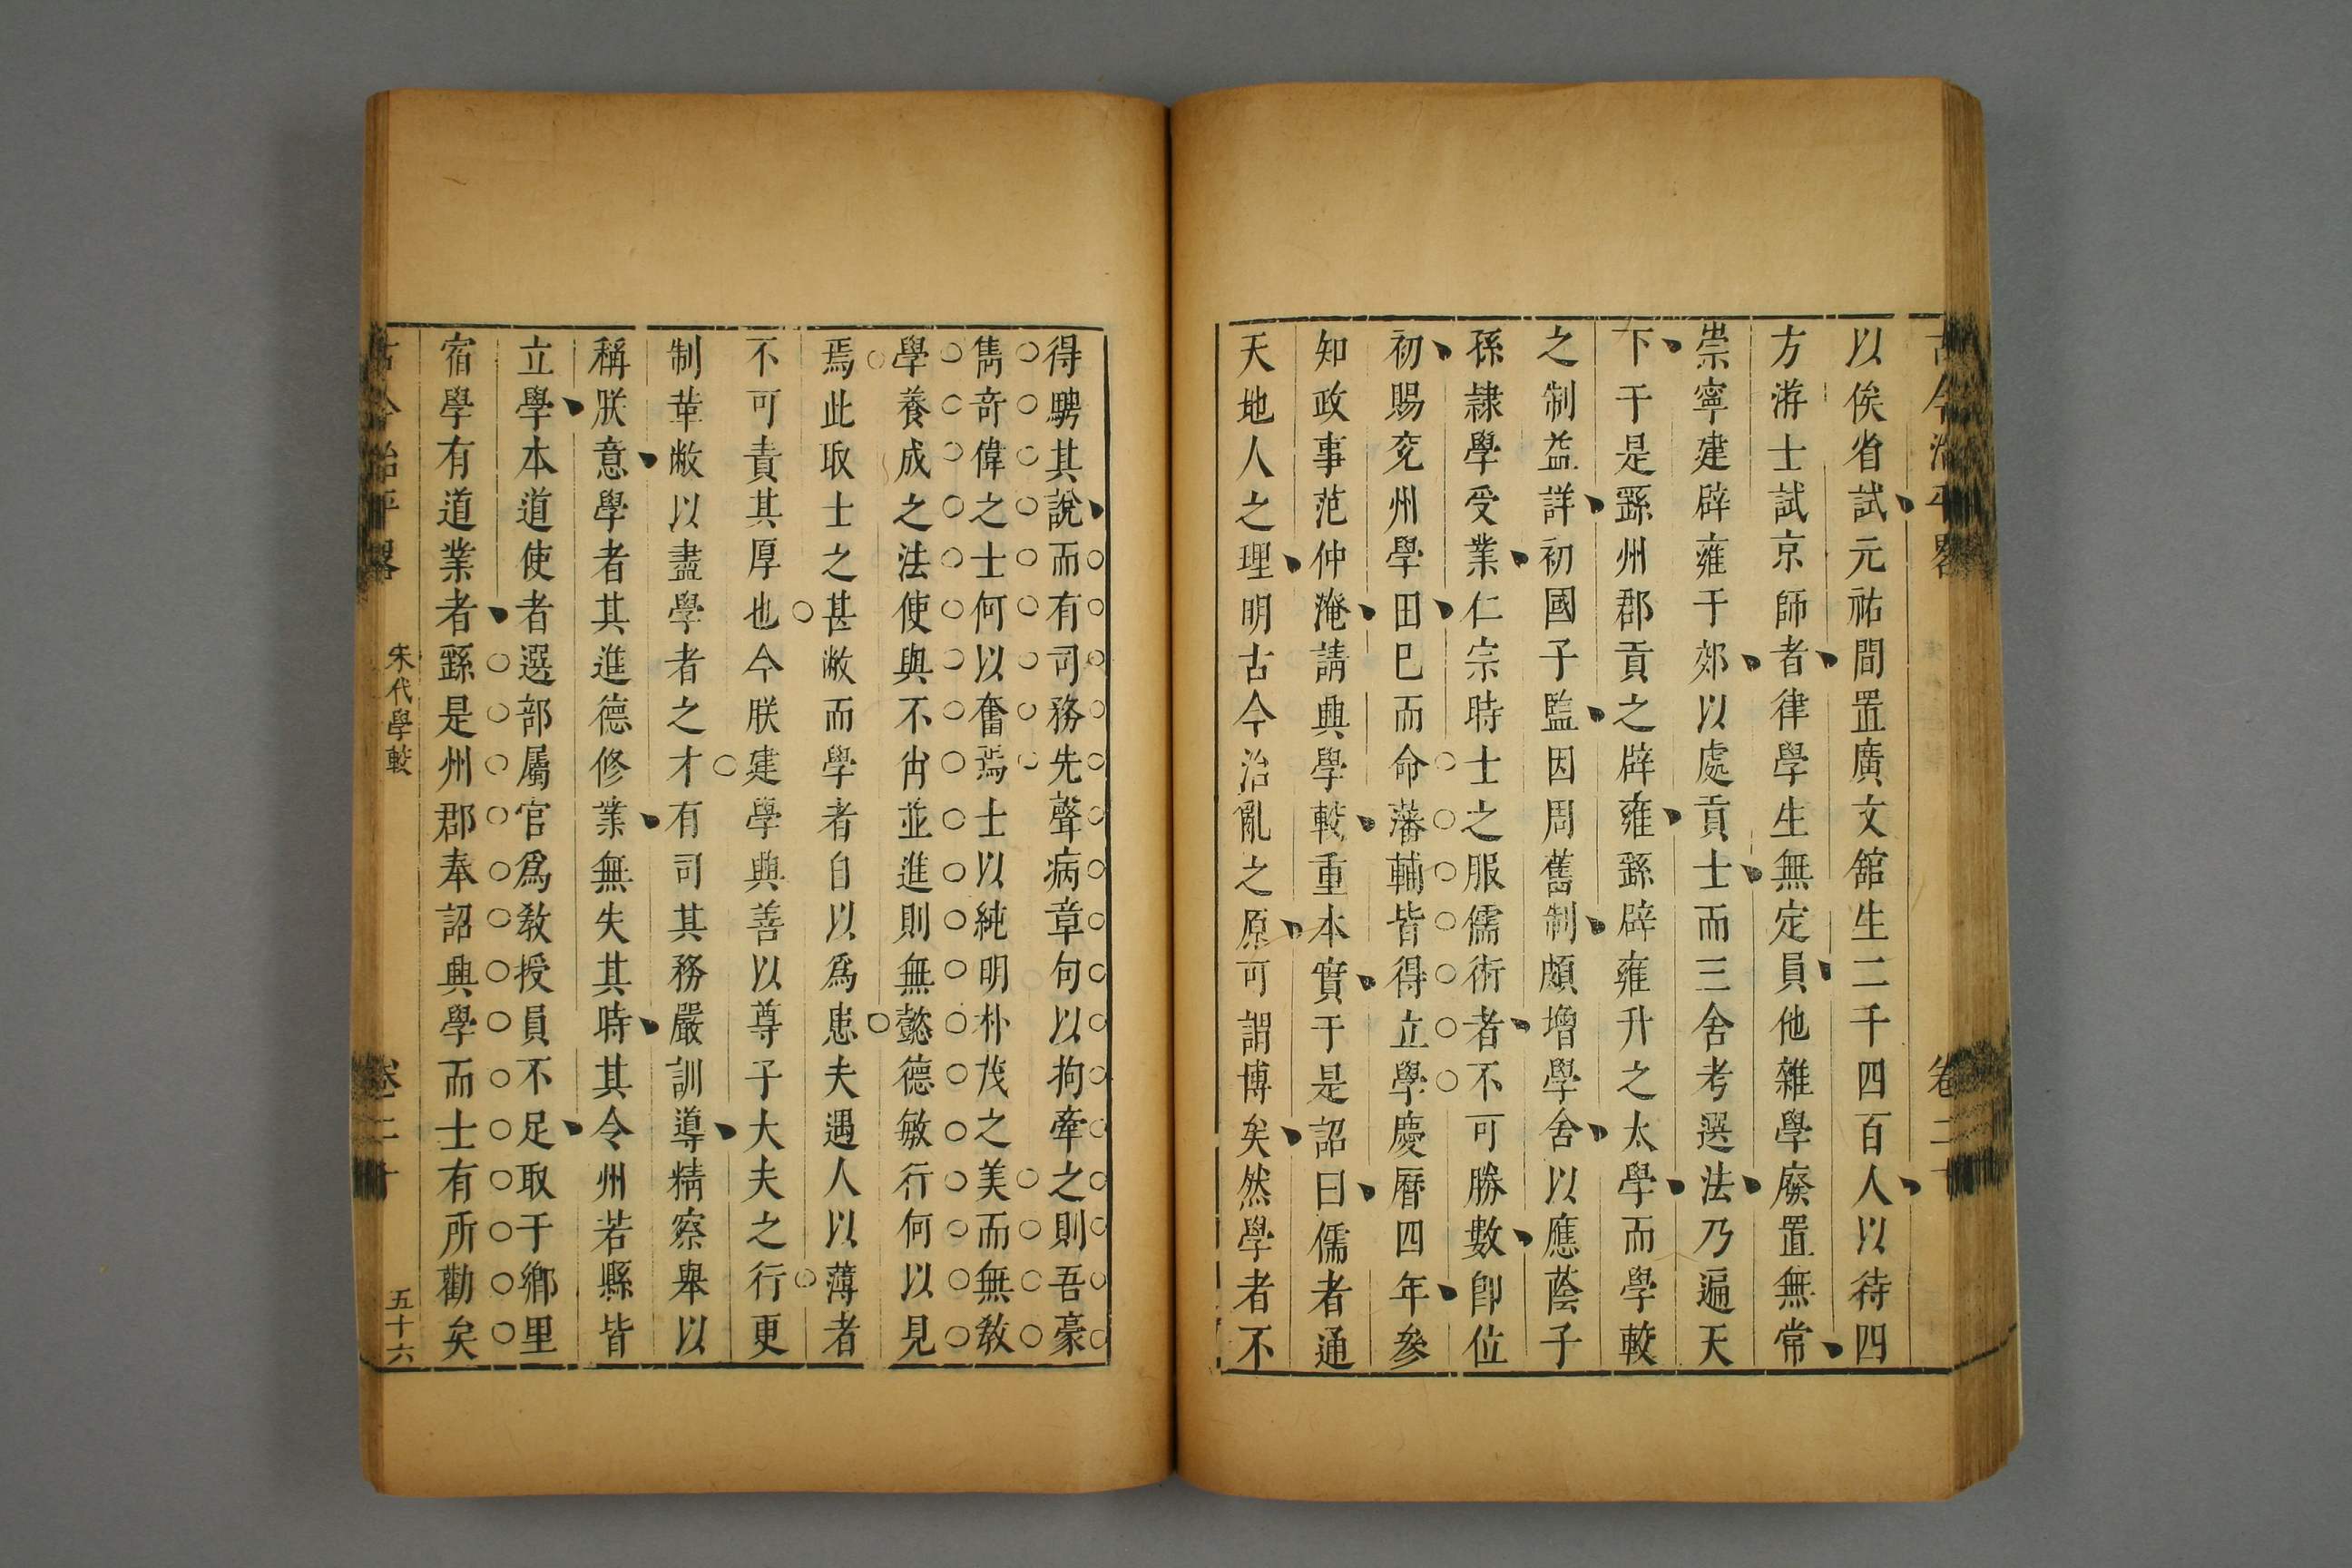 古今治平畧
卷二十
以俟省試元祐間置廣文舘生二千四百人以待四
方游士試京師者律學生無定員他雜學廢置無常
崇寧建辟雍于郊以處貢士而三舍考選法乃遍天
下于是繇州郡貢之辟雍繇辟雍升之太學而學較
之制益詳初國子監因周舊制頗增學舍以應蔭子
孫隷學受業仁宗時士之服儒術者不可勝數卽位
初賜兖州學田巳而命藩輔皆得立學慶曆四年參
知政事范仲淹請興學較重本實于是詔曰儒者通
天地人之理明古今治亂之原可謂博矣然學者不
得騁其說而有司務先聲病章句以拘牽之則吾豪
雋奇偉之士何以奮焉士以純明朴茂之美而無敎
學養成之法使與不肖並進則無懿德敏行何以見
焉此取士之甚敝而學者自以爲患夫遇人以薄者
不可責其厚也今朕建學興善以尊子大夫之行更
制革敝以盡學者之才有司其務嚴訓導精察舉以
稱朕意學者其進德修業無失其時其令州若縣皆
立學本道使者選部屬官爲敎授員不足取于鄉里
宿學有道業者繇是州郡奉詔興學而士有所勸矣
古今治平畧
宋代學較
卷二十
五十六